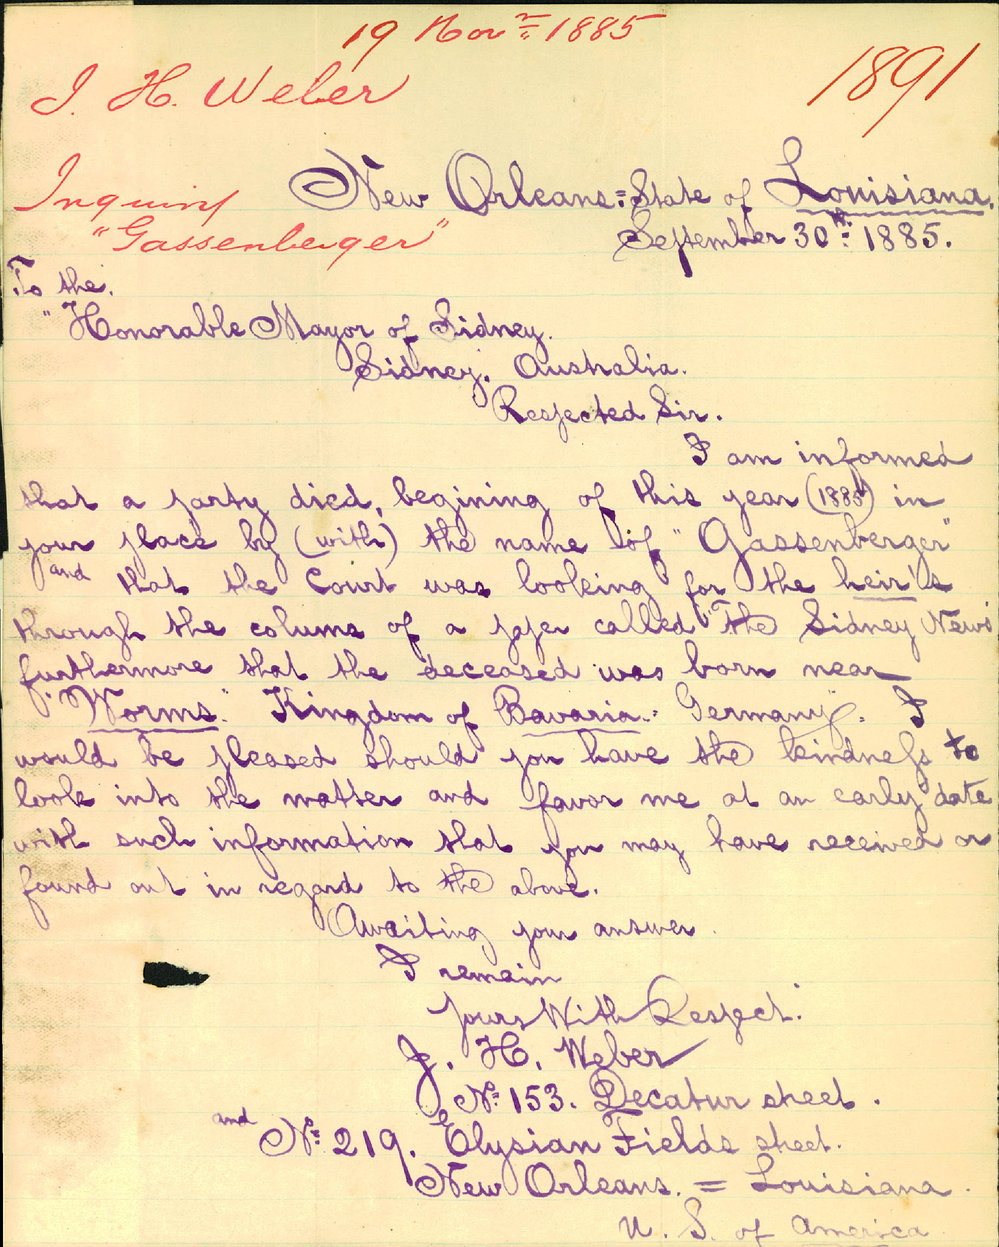 19 Novr 1885
J. H. Weber
1891
Inquiring
"Gassenberger"
New Orleans = State of Louisiana.
September 30th 1885.
To the.
"Honorable Mayor of Sidney.
Sidney. Australia.
Respected Sir.
I am informed
that a party died, begining of this year (1885) in
your place by (with) the name of "Gassenberger"
and that the Court was looking for the heir's
through the colums of a paper called "The Sidney News"
furthermore that the deceased was born near
"Worms." Kingdom of Bavaria. Germany. I
would be pleased should you have the kindness to
look into the matter and favor me at an early date
with such information that you may have received or
found out in regard to the above.
Awaiting your answer.
I remain
yours With Respect.
J. H. Weber
No. 153. Decatur street.
and No. 219. Elysian Fields street.
New Orleans. = Louisiana.
U. S. of America